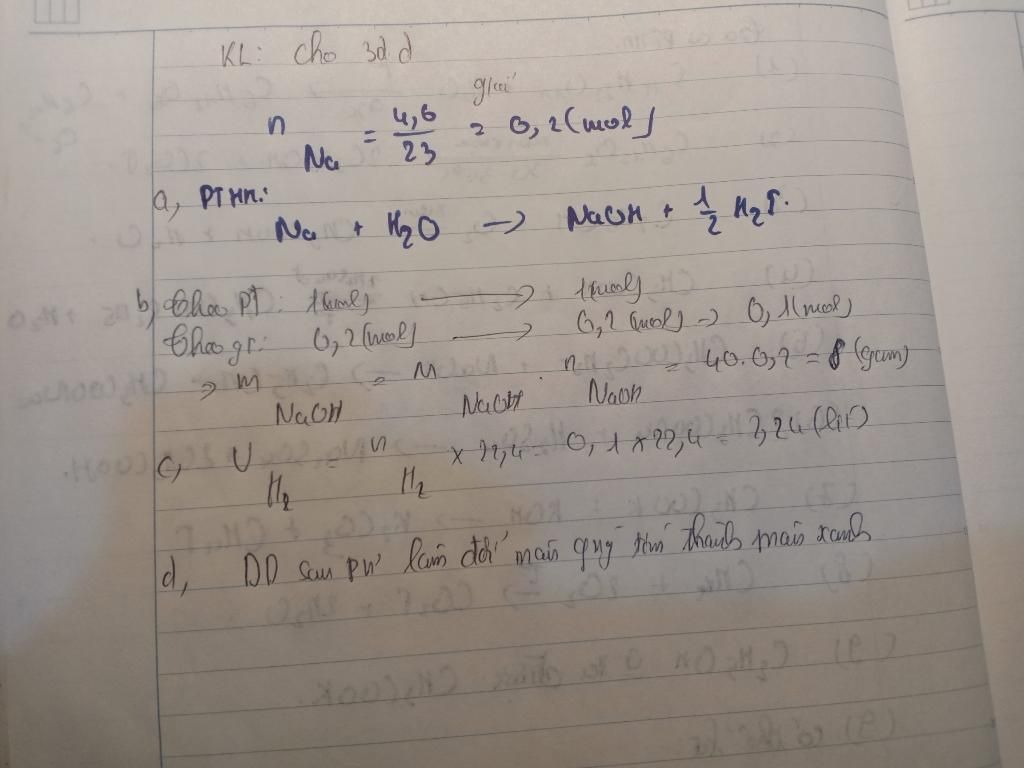 KL: Cho 3đ d
giải
n Na = 4,6/23 = 0,2 (mol)
a, PTHH:
Na + H2O → NaOH + 1/2 H2↑.
b, theo PT: 1(mol) → 1(mol)
theo gt: 0,2(mol) → 0,2(mol) → 0,1(mol)
⇒ m NaOH = M NaOH . n NaOH = 40.0,2 = 8 (gam)
c, V H2 = n H2 x 22,4 = 0,1 x 22,4 = 2,24 (lít)
d, DD sau pứ làm đổi màu quỳ tím thành màu xanh